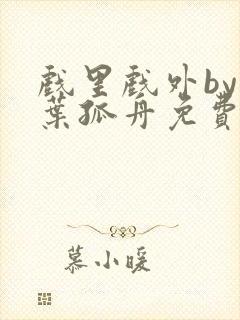 戲里戲外by
葉孤舟免費
慕小暖